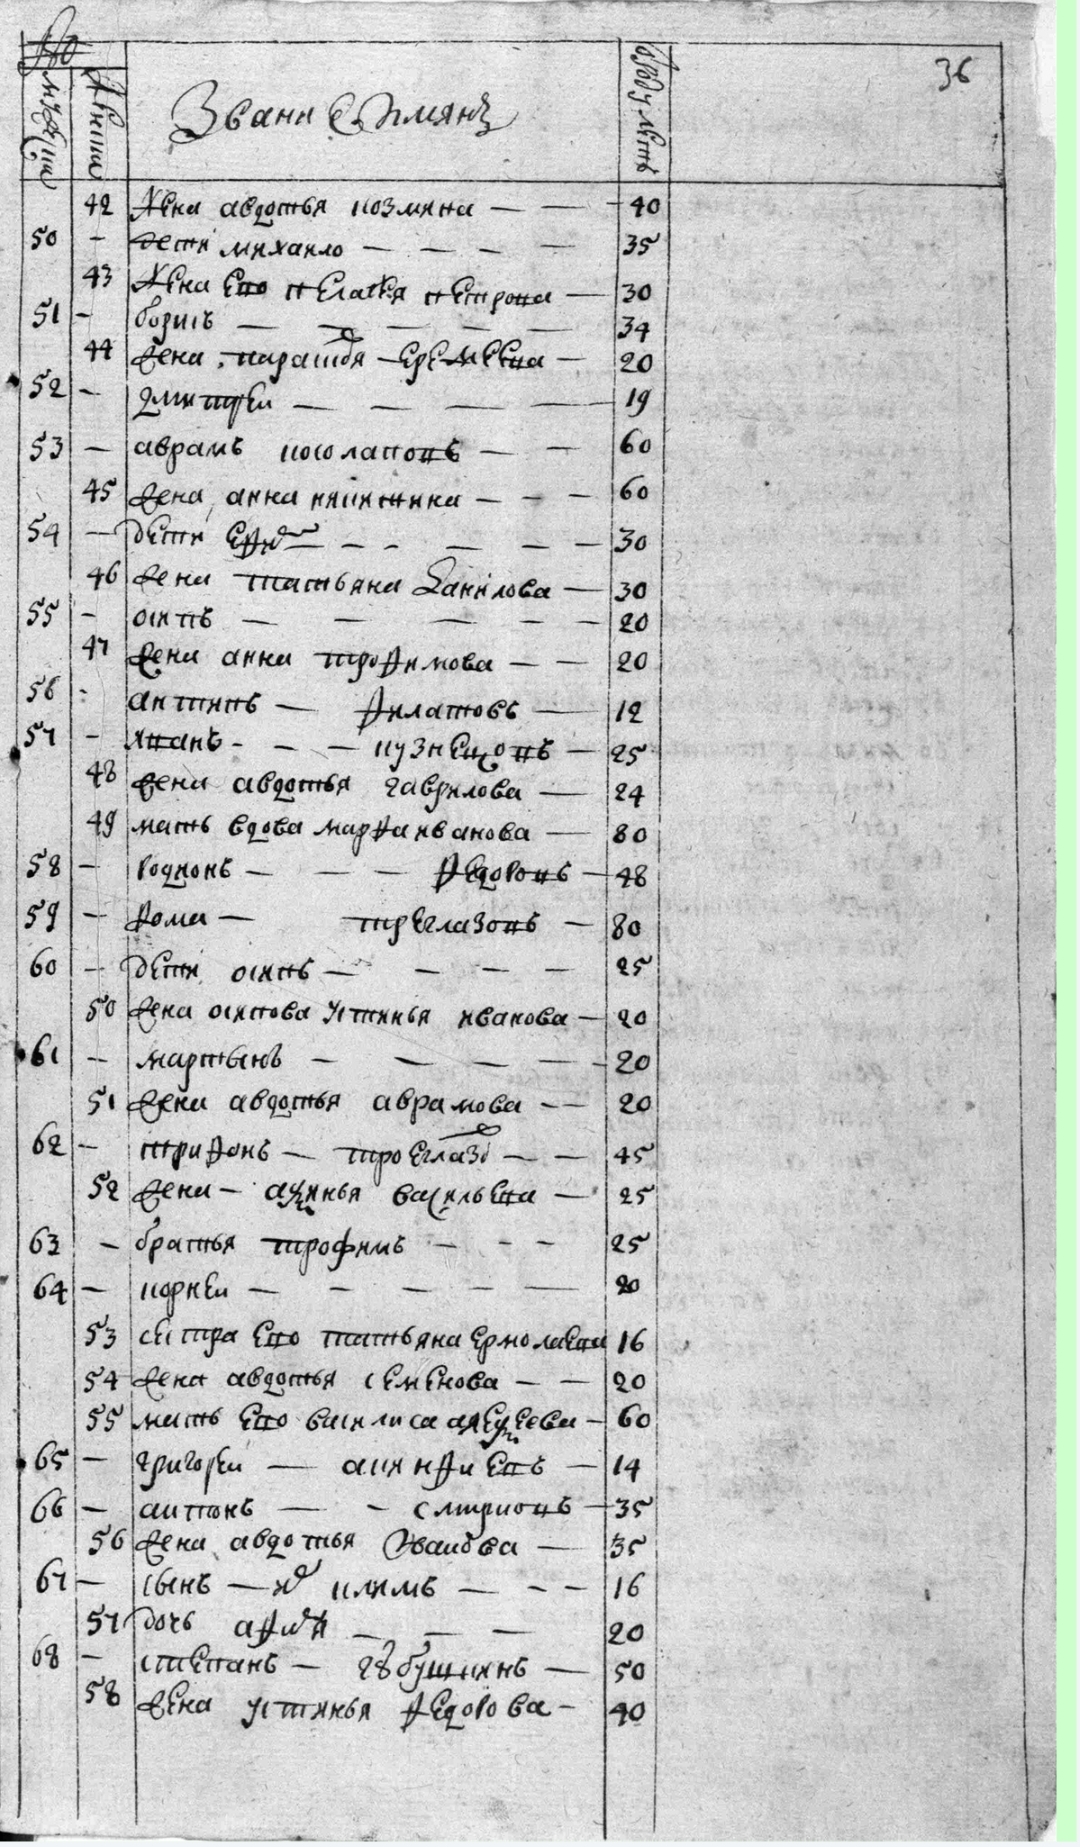 №
36
мужеска женска Звани Симянъ отроду летъ
42 жена авдотья козмина — — 40
50 - дети михаило — — — — 35
43 жена Ево пелагея петрова — 30
51 - борисъ — — — — — 34
44 жена парасковя Еремеева — 20
52 - дмитреи — — — — 19
53 — аврамъ — — 60
45 жена анна никитина — - — 60
54 — дети — - - — — — 30
46 жена татьяна данилова — 30
55 - осипъ — — — - — 20
47 жена анна трофимова — — 20
56 - антипъ — филатовъ — 12
57 - иванъ - - — кузнецовъ — 25
48 жена авдотья гаврилова — 24
49 мать вдова марфа иванова — 80
58 — родионъ — — — федоровъ — 48
59 — фома — треглазовъ — 80
60 — дети осипъ — — — — 25
50 жена осипова устинья иванова — 20
61 — мартынъ — — — — 20
51 жена авдотья аврамова — — 20
62 - трифонъ — троеглазо — — 45
52 жена — аксинья васильева — 25
63 — братья трофимъ — - — 25
64 — корнеи — — — — — 20
53 сестра Ево татьяна ермолаева 16
54 жена авдотья семенова — — 20
55 мать Ево василиса алексеева — 60
65 — григореи — — 14
66 — антонъ — - смирновъ — 35
56 жена авдотья Иванова — 35
67 — сынъ — климъ — - — 16
57 дочь — — — 20
68 — степанъ — — 50
58 жена устинья федорова — 40